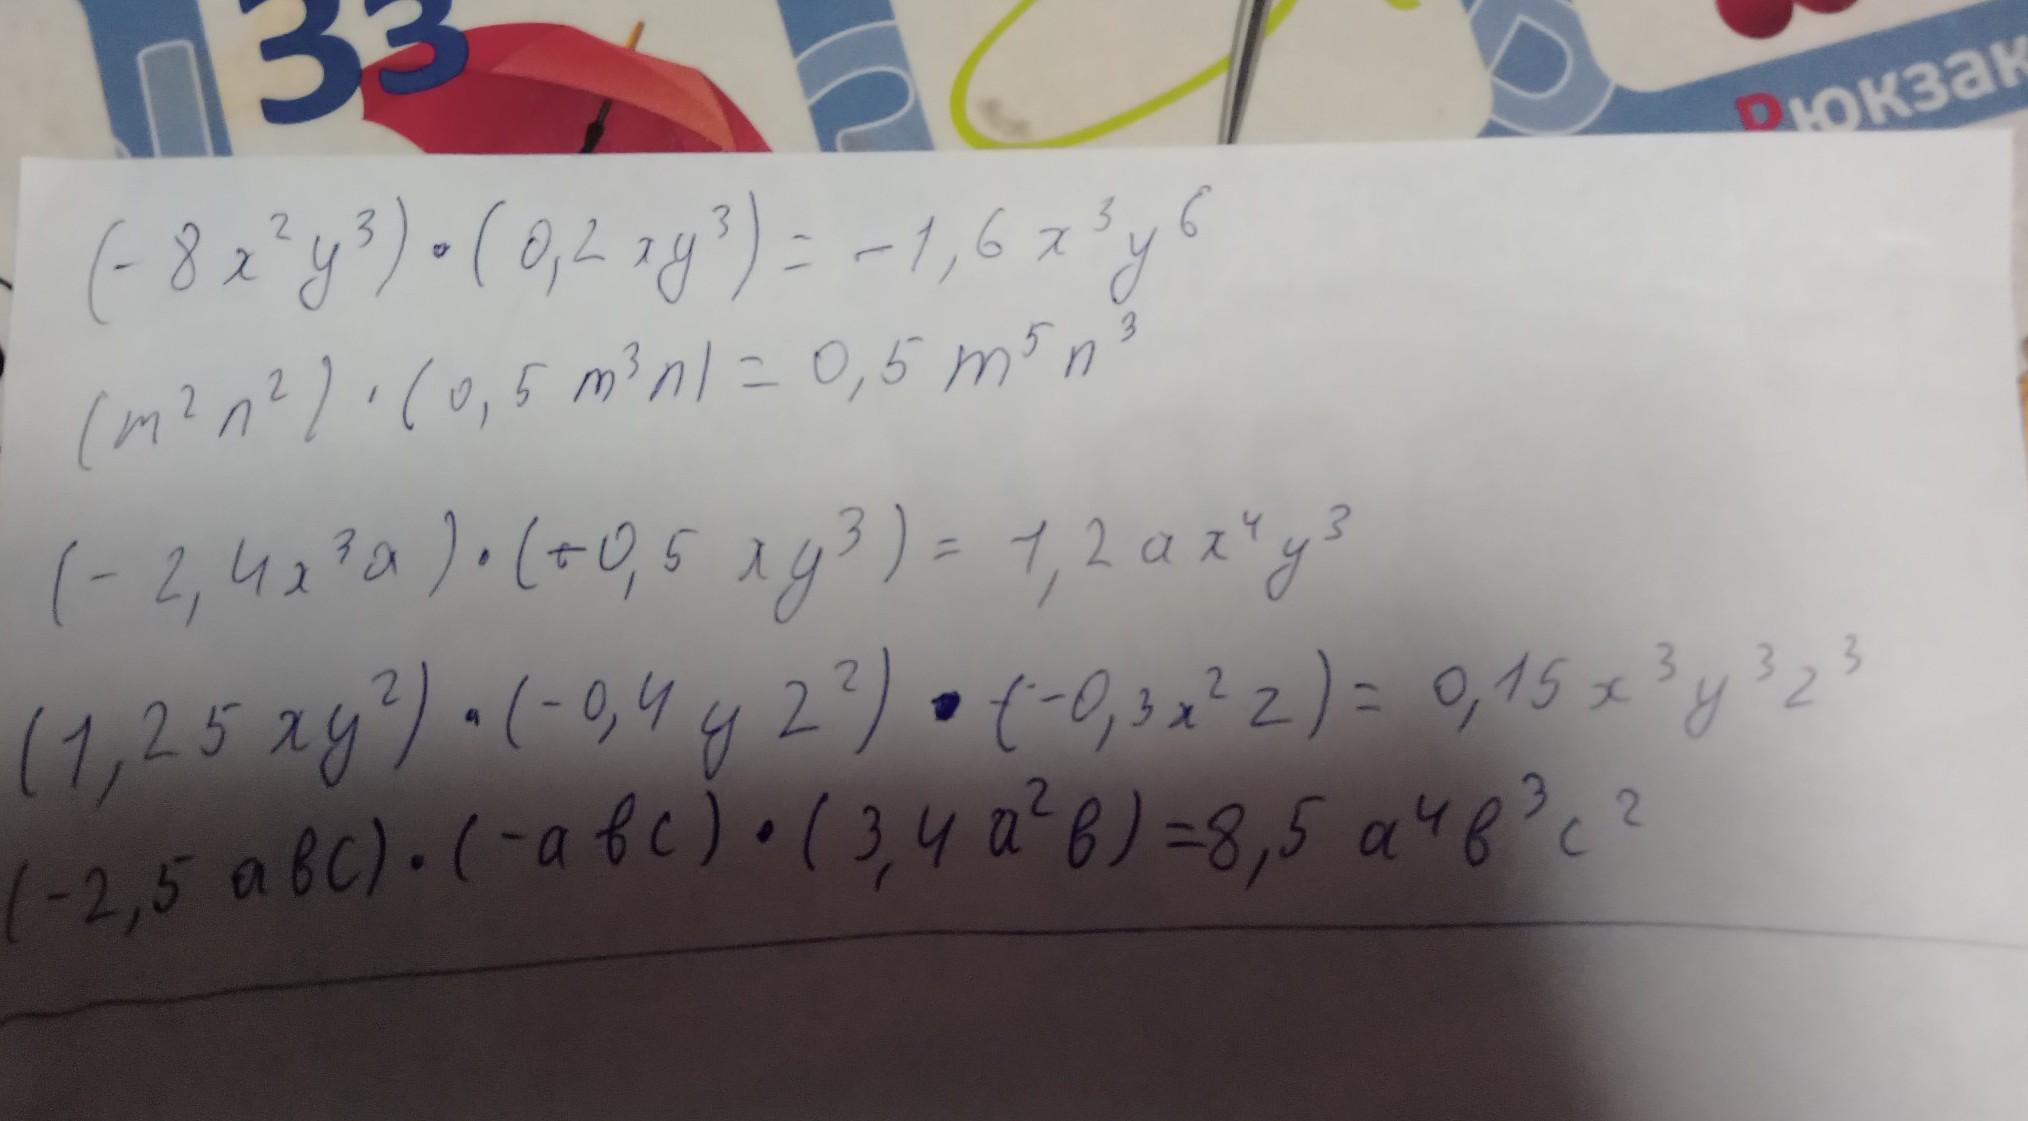 33
Рюкзак
(-8x²y³)·(0,2xy³)=-1,6x³y⁶
(m²n²)·(0,5m³n)=0,5m⁵n³
(-2,4x³a)·(-0,5xy³)=1,2ax⁴y³
(1,25xy²)·(-0,4yz²)·(-0,3x²z)=0,15x³y³z³
(-2,5aвc)·(-aвc)·(3,4a²в)=8,5a⁴в³c²